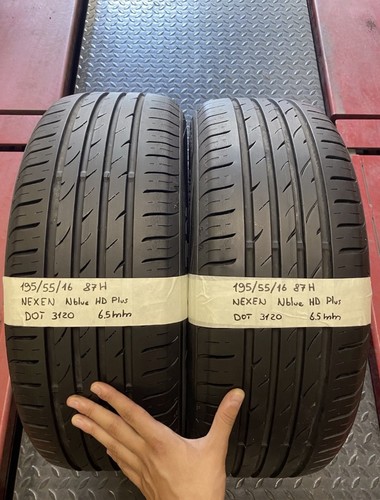 195/55/16 87H
NEXEN Nblue HD Plus
DOT 3120 6.5mm
195/55/16 87H
NEXEN Nblue HD Plus
DOT 3120 6.5mm